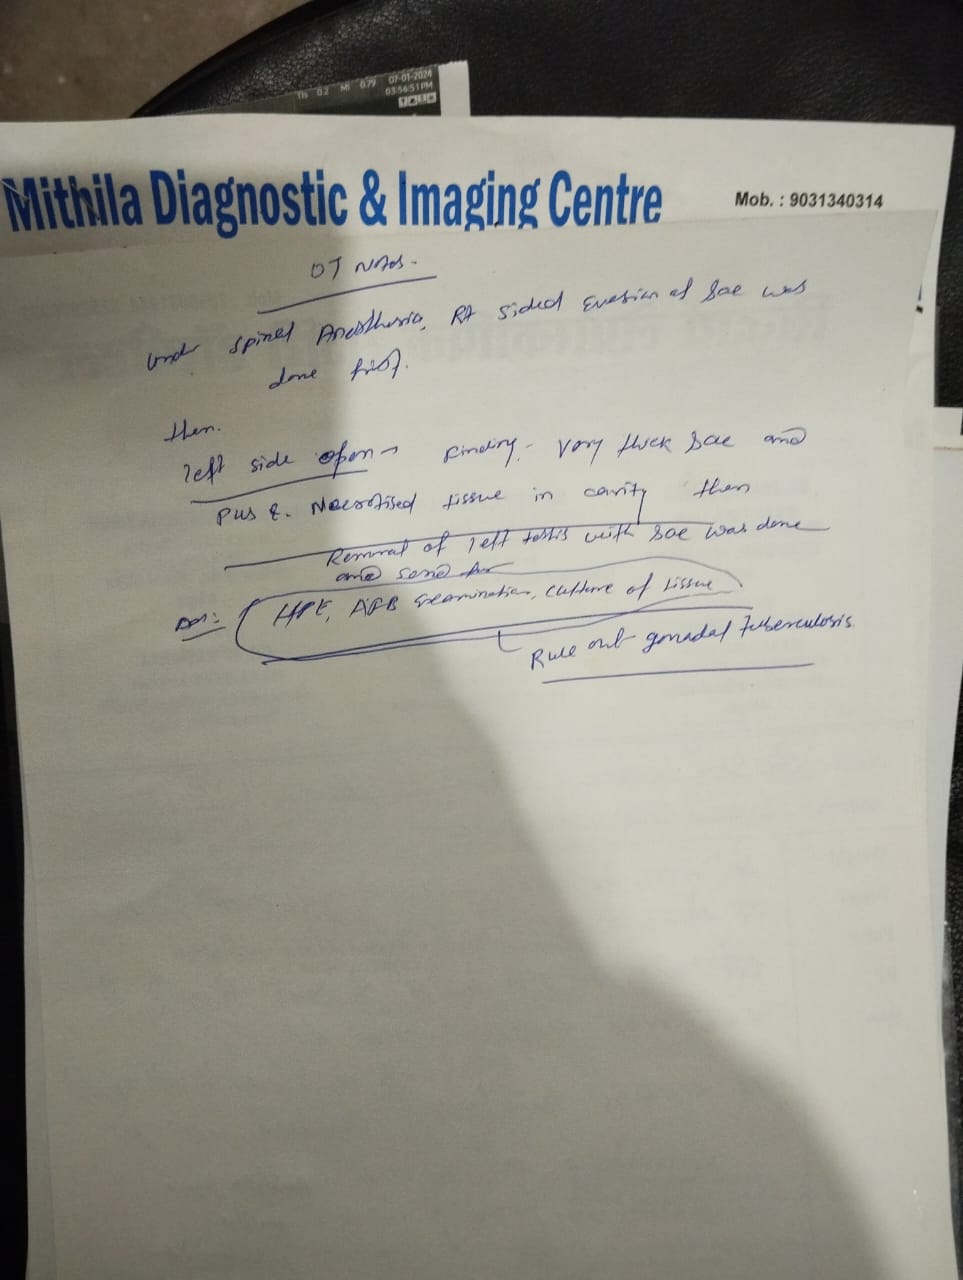 TIs 0.2 MI 0.79 07-01-2024
03:56:51PM
Mithila Diagnostic & Imaging Centre
Mob. : 9031340314
OT Notes-
Under spinal Anesthesia, Rt sided Eversion of Sac was
done first.
then.
left side open → Finding - Very thick Sac and
pus & Necrotised tissue in cavity then
Removal of left testis with Sac was done
and send for
HPE, AFB Examination, Culture of tissue
Rule out gonadal Tuberculosis.